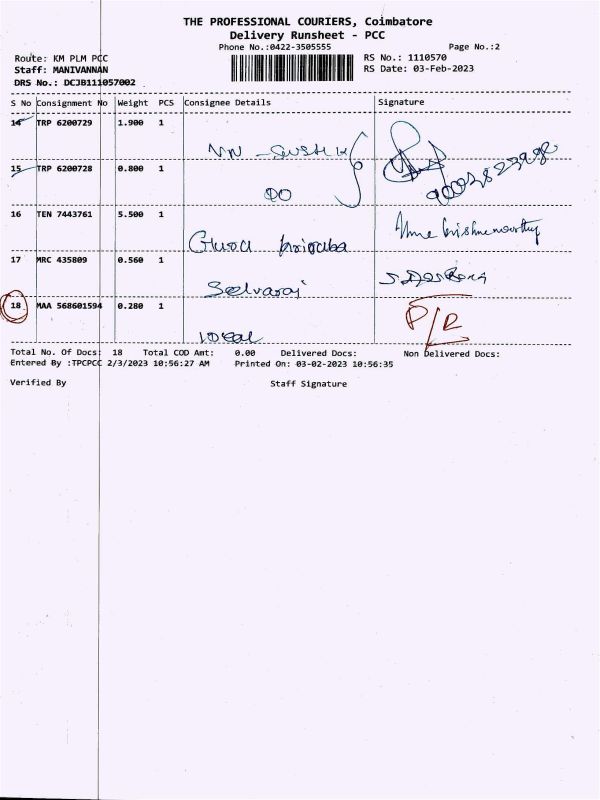 THE PROFESSIONAL COURIERS, Coimbatore
Delivery Runsheet - PCC
Phone No.:0422-3505555 Page No.:2
Route: KM PLM PCC RS No.: 1110570
Staff: MANIVANNAN RS Date: 03-Feb-2023
DRS No.: DCJB111057002
S No Consignment No Weight PCS Consignee Details Signature
14 TRP 6200729 1.900 1
15 TRP 6200728 0.800 1
DO
16 TEN 7443761 5.500 1
Guru
17 MRC 435809 0.560 1
Selvaraj
18 MAA 568601594 0.280 1 P/R
Total No. Of Docs: 18 Total COD Amt: 0.00 Delivered Docs: Non Delivered Docs:
Entered By :TPCPCC 2/3/2023 10:56:27 AM Printed On: 03-02-2023 10:56:35
Verified By Staff Signature